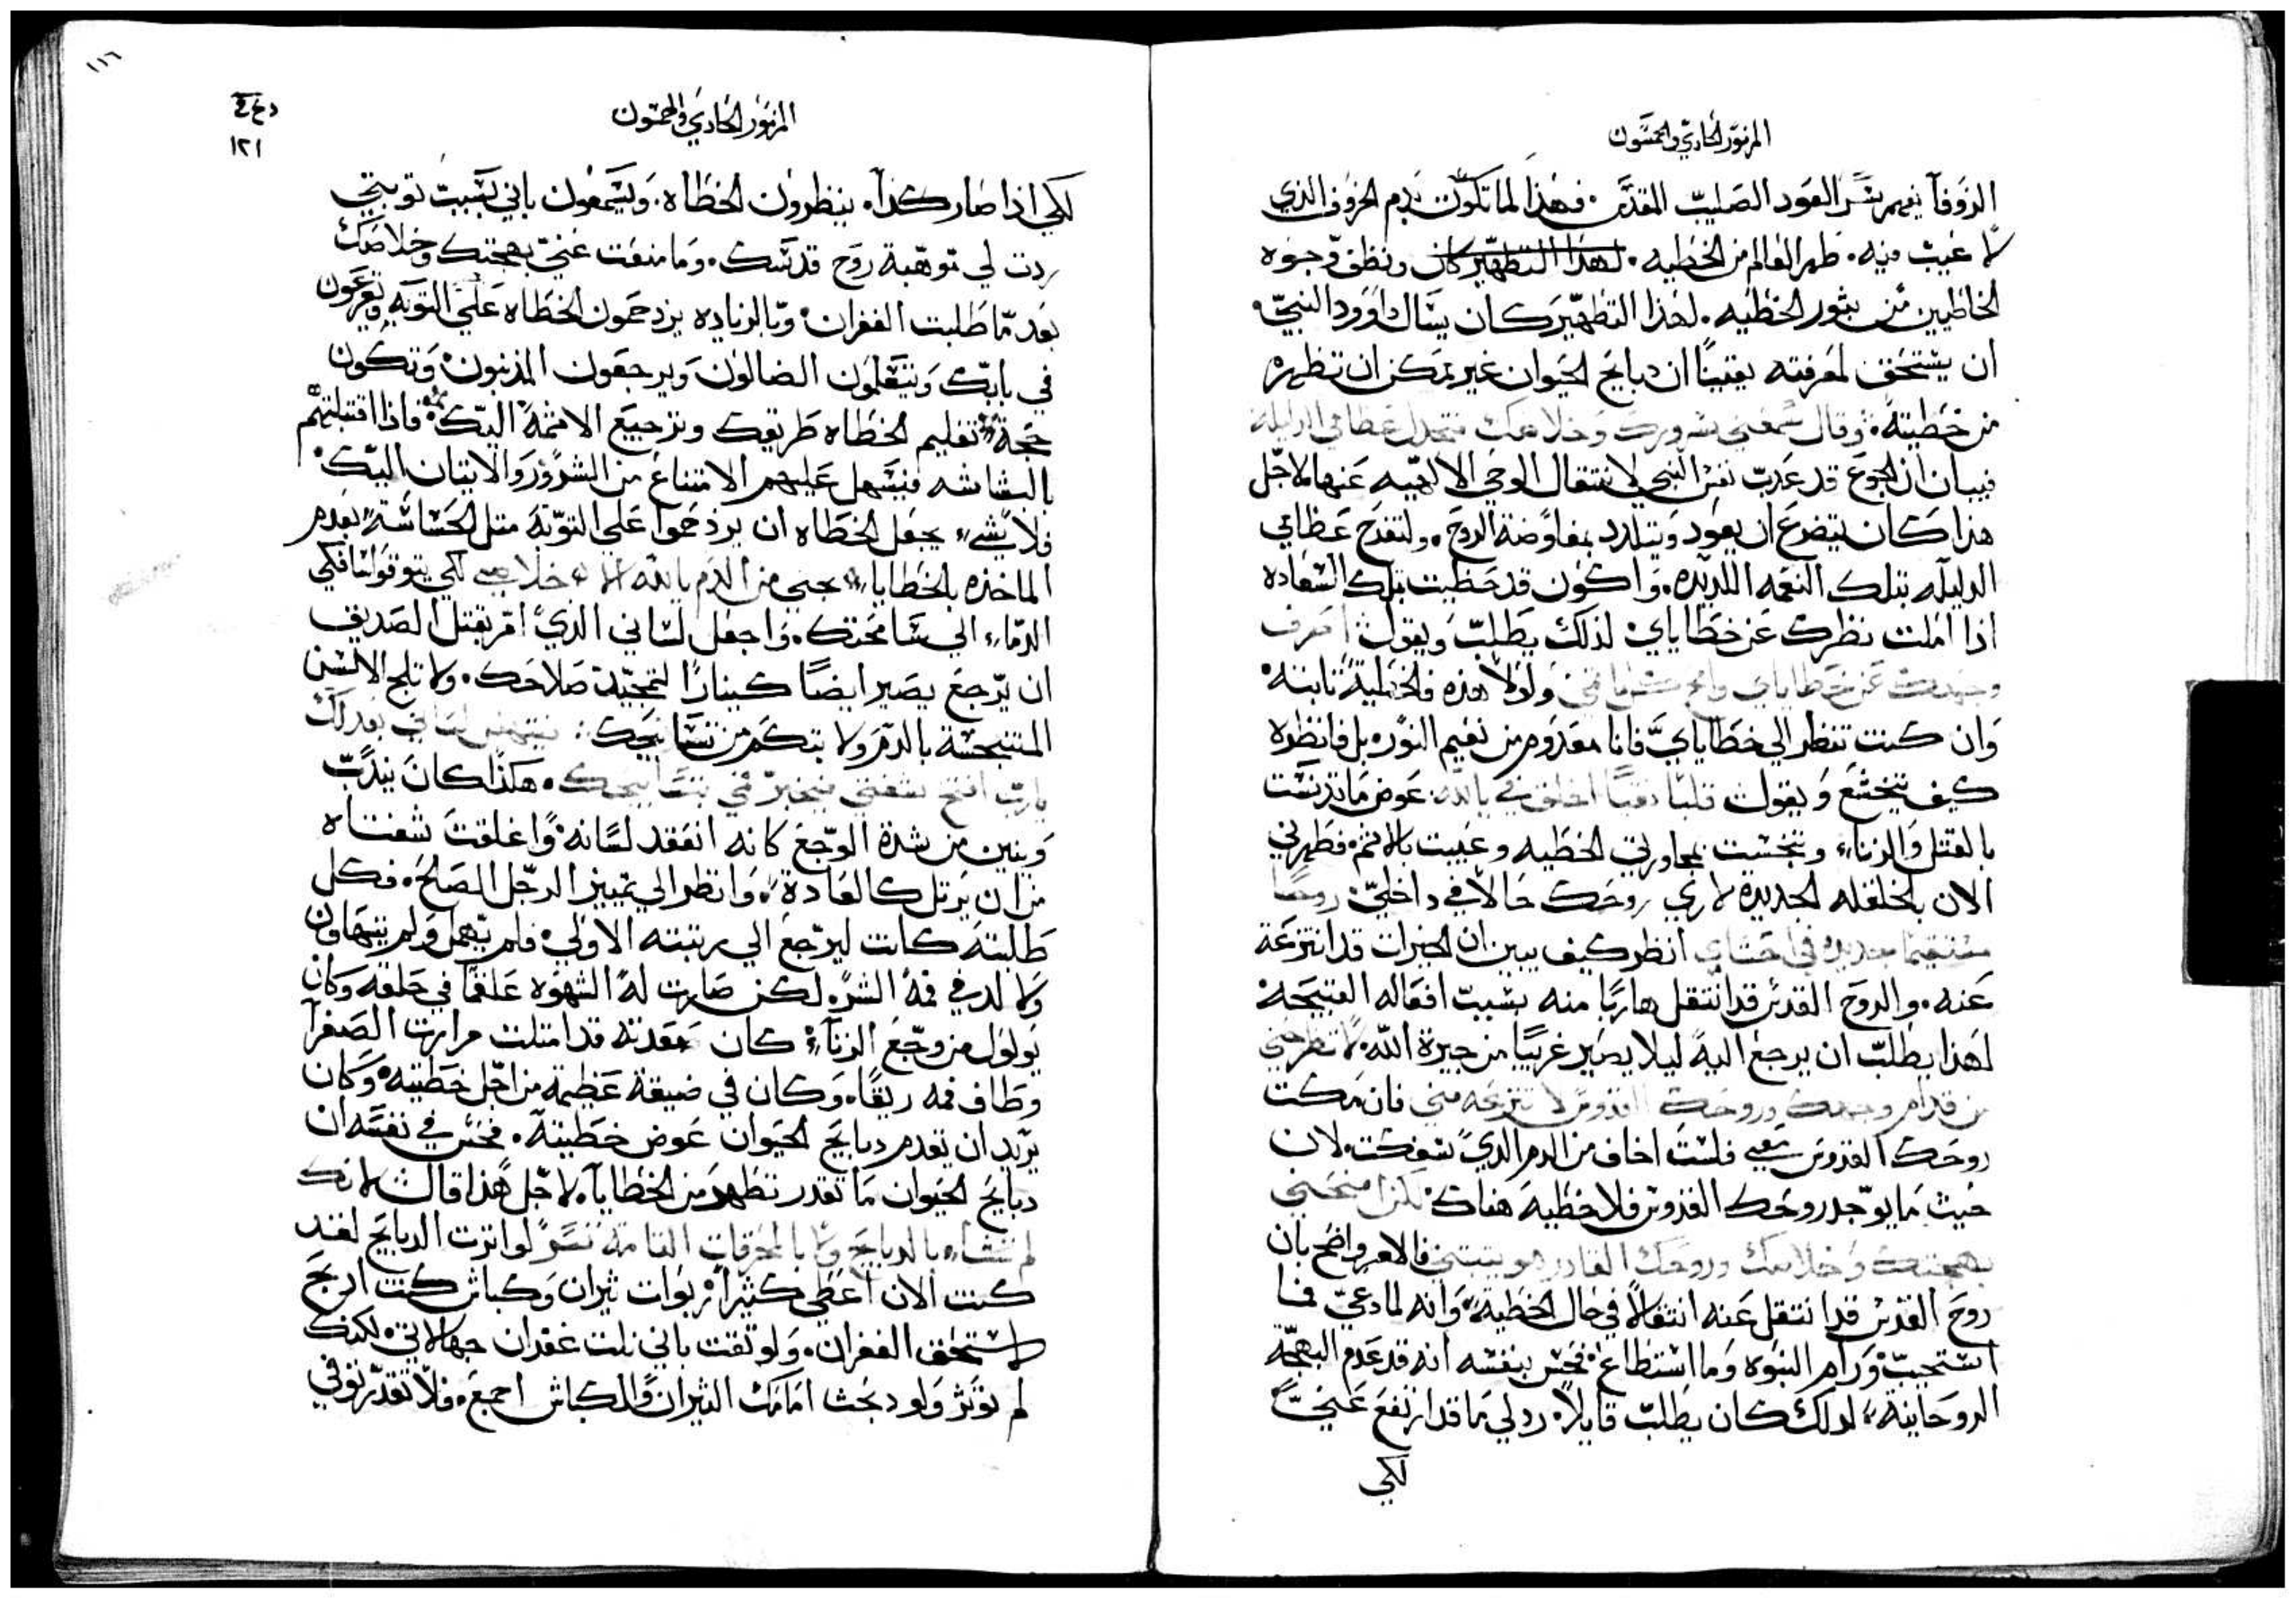 المزمور الحادي والخمسون
الزوفا يفهم بسر العود الصليب المقدس. فهذا لما تكون بدم الخروف الذي
لا عيب فيه. طهر العالم من الخطيه. لهذا التطهير كان ونظف وجوه
الخاطيين من بثور الخطيه. لهذا التطهير كان يسال داوود النبي.
ان يستحق لمعرفته يقينًا ان دبايح الحيوان غير يمكن ان تطهره
من خطيته. وقال سمعني سرورك وخلاصك فتجدل عظامي الدليلة
فبيان ان الجوع قد عدب نفس النبي لانتقال الوحي الالهيه عنها لاجل
هذا كان يتضرع ان يعود ويتلدد بمفاوضة الروح. ولتفرح عظامي
الدليله بتلك النعمه اللديده. واكون قد حظيت بتلك السعاده
اذا املت نظرك عن خطاياي لذلك يطلب ويقول اصرف
وجهك عن خطاياي وامح كل ماثمي ولولا هذه فالخطية ثابته
وان كنت تنظر الي خطاياي فانا معدوم من نعيم النور بل فانظره
كيف يتخشع ويقول قلبًا نقيًا اخلق في يا الله عوض ما تدنست
بالقتل والزناء وتنجست بمجاورتي الخطيه وعييت بالاثم فطهرني
الان بالخلقله الجديده لاري روحك حالاً في داخلي روحًا
مستقيمًا جديده في احشاي انظر كيف يبين ان الخيرات قد انتزعة
عنه. والروح القدس قد انتقل هاربًا منه بسبب افعاله القبيحه
لهذا يطلب ان يرجع اليه ليلا يصير غريبًا من جيرة الله. لا تطرحني
من قدام وجهك وروحك القدوس لا تنزعه مني فان مكت
روحك القدوس معي فلست اخاف من الدم الدي سفكت. لان
حيث ما يوجد روحك القدوس فلا خطية هناك لكن امنحني
بهجتك وخلاصك وروحك القادر هو يتبتني فالامر واضح بان
روح القدس قد انتقل عنه انتقالاً في حال الخطية وانه لما دعي فما
استجيب ورام النبوه وما استطاع فحس بنفسه انه قد عدم البهجة
الروحانية لدلك كان يطلب قايلاً رد لي ما قد ارتفع عني
لكي
١١٦
١٢١
المزمور الحادي والخمسون
لكي اذا صار كذا. ينظرون الخطاه. ويسمعون باني بسبب توبتي
ردت لي موهبة روح قدسك. وما منعت عني بهجتك وخلاصك
بعد ما طلبت الغفران. وبالزياده يزدحمون الخطاه علي التوبه ويقرعون
في بابك ويتعلمون الضالون ويرجعون المذنبون وتكون
حجة تعليم الخطاه طريقك وترجيع الاثمة اليك فاذا اقتبلتهم
بالبشاشه فيسهل عليهم الامتناع من الشرور والاتيان اليك
فلا شيء يجعل الخطاه ان يزدحموا علي التوبة متل الحساشة بعدم
الماخذه بالخطايا نجني من الدم يا الله اله خلاصي لكي
الدماء الي مسامحتك. واجعل لساني الدي امر بقتل الصديق
ان يرجع يصير ايضًا كينارًا لتمجيد صلاحك. ولا تلج الالسن
المتنجسة بالدم ولا بتكم من تسابيحك يبتهج لساني بعدلك
يارب افتح شفتي فيخبر فمي بتسابيحك. هكذا كان يندب
وينين من شدة الوجع كانه انعقد لسانه واغلقت شفتاه
من ان يرتل كالعادة. وانظر الي تمييز الرجل الصالح. فكل
طلبته كانت ليرجع الي رتبته الاولي. فلم يهمل ولم يتهاون
ولا لد في فمه الشر. لكن صارت له الشهوه علقمًا في حلقه وكان
يولول من وجع الزناء كان معدته قد امتلت مرارت الصفرا
وطاف فمه ريقًا. وكان في ضيقة عظيمة من اجل خطيته وكان
يريد ان يقدم دبايح الحيوان عوض خطيته. فحس في نفسه ان
دبايح الحيوان ما تقدر تطهر من الخطايا. لاجل هذا قال لانك
لم تشاء بالدبايح ولا بالمحرقات التامة تسر لو اترت الدبايح لقد
كنت الان اعطي كثيرًا ربوات ثيران وكباش كنت ادبح
لاستحق الغفران. ولو تقت باني نلت غفران جهالاتي لكنك
لم توتر ولو دبحت امامك الثيران والكباش اجمع. فلا تقدر توفي